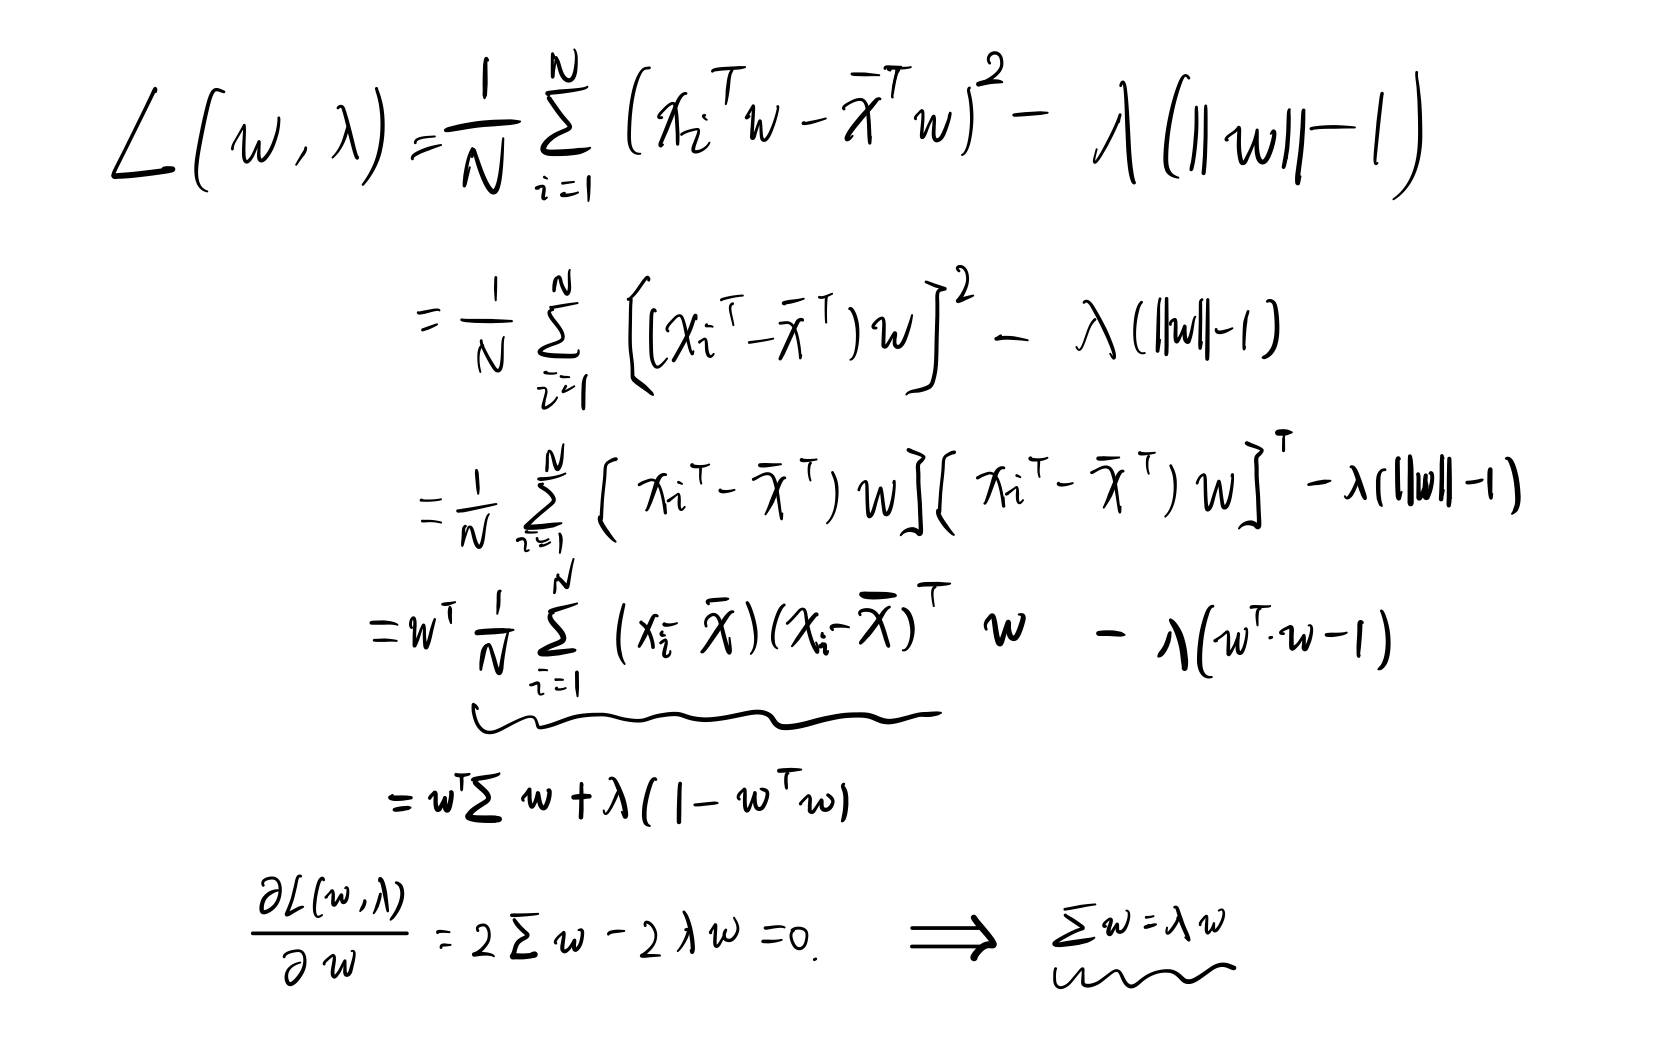 L(w, λ) = 1/N ∑_{i=1}^{N} (x_i^T w - x̄^T w)^2 - λ(||w|| - 1)
= 1/N ∑_{i=1}^{N} [(x_i^T - x̄^T) w]^2 - λ(||w|| - 1)
= 1/N ∑_{i=1}^{N} [x_i^T - x̄^T) w][x_i^T - x̄^T) w]^T - λ(||w|| - 1)
= w^T 1/N ∑_{i=1}^{N} (x_i - x̄)(x_i - x̄)^T w - λ(w^T · w - 1)
= w^T Σ w + λ(1 - w^T w)
∂L(w, λ)/∂w = 2Σw - 2λw = 0. ⟹ Σw = λw